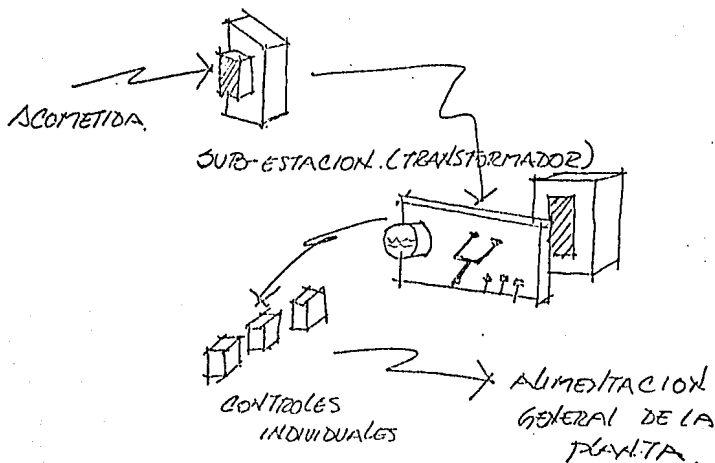 ACOMETIDA.
SUB-ESTACION. (TRANSFORMADOR)
CONTROLES
INDIVIDUALES
ALIMENTACION
GENERAL DE LA
PLANTA.